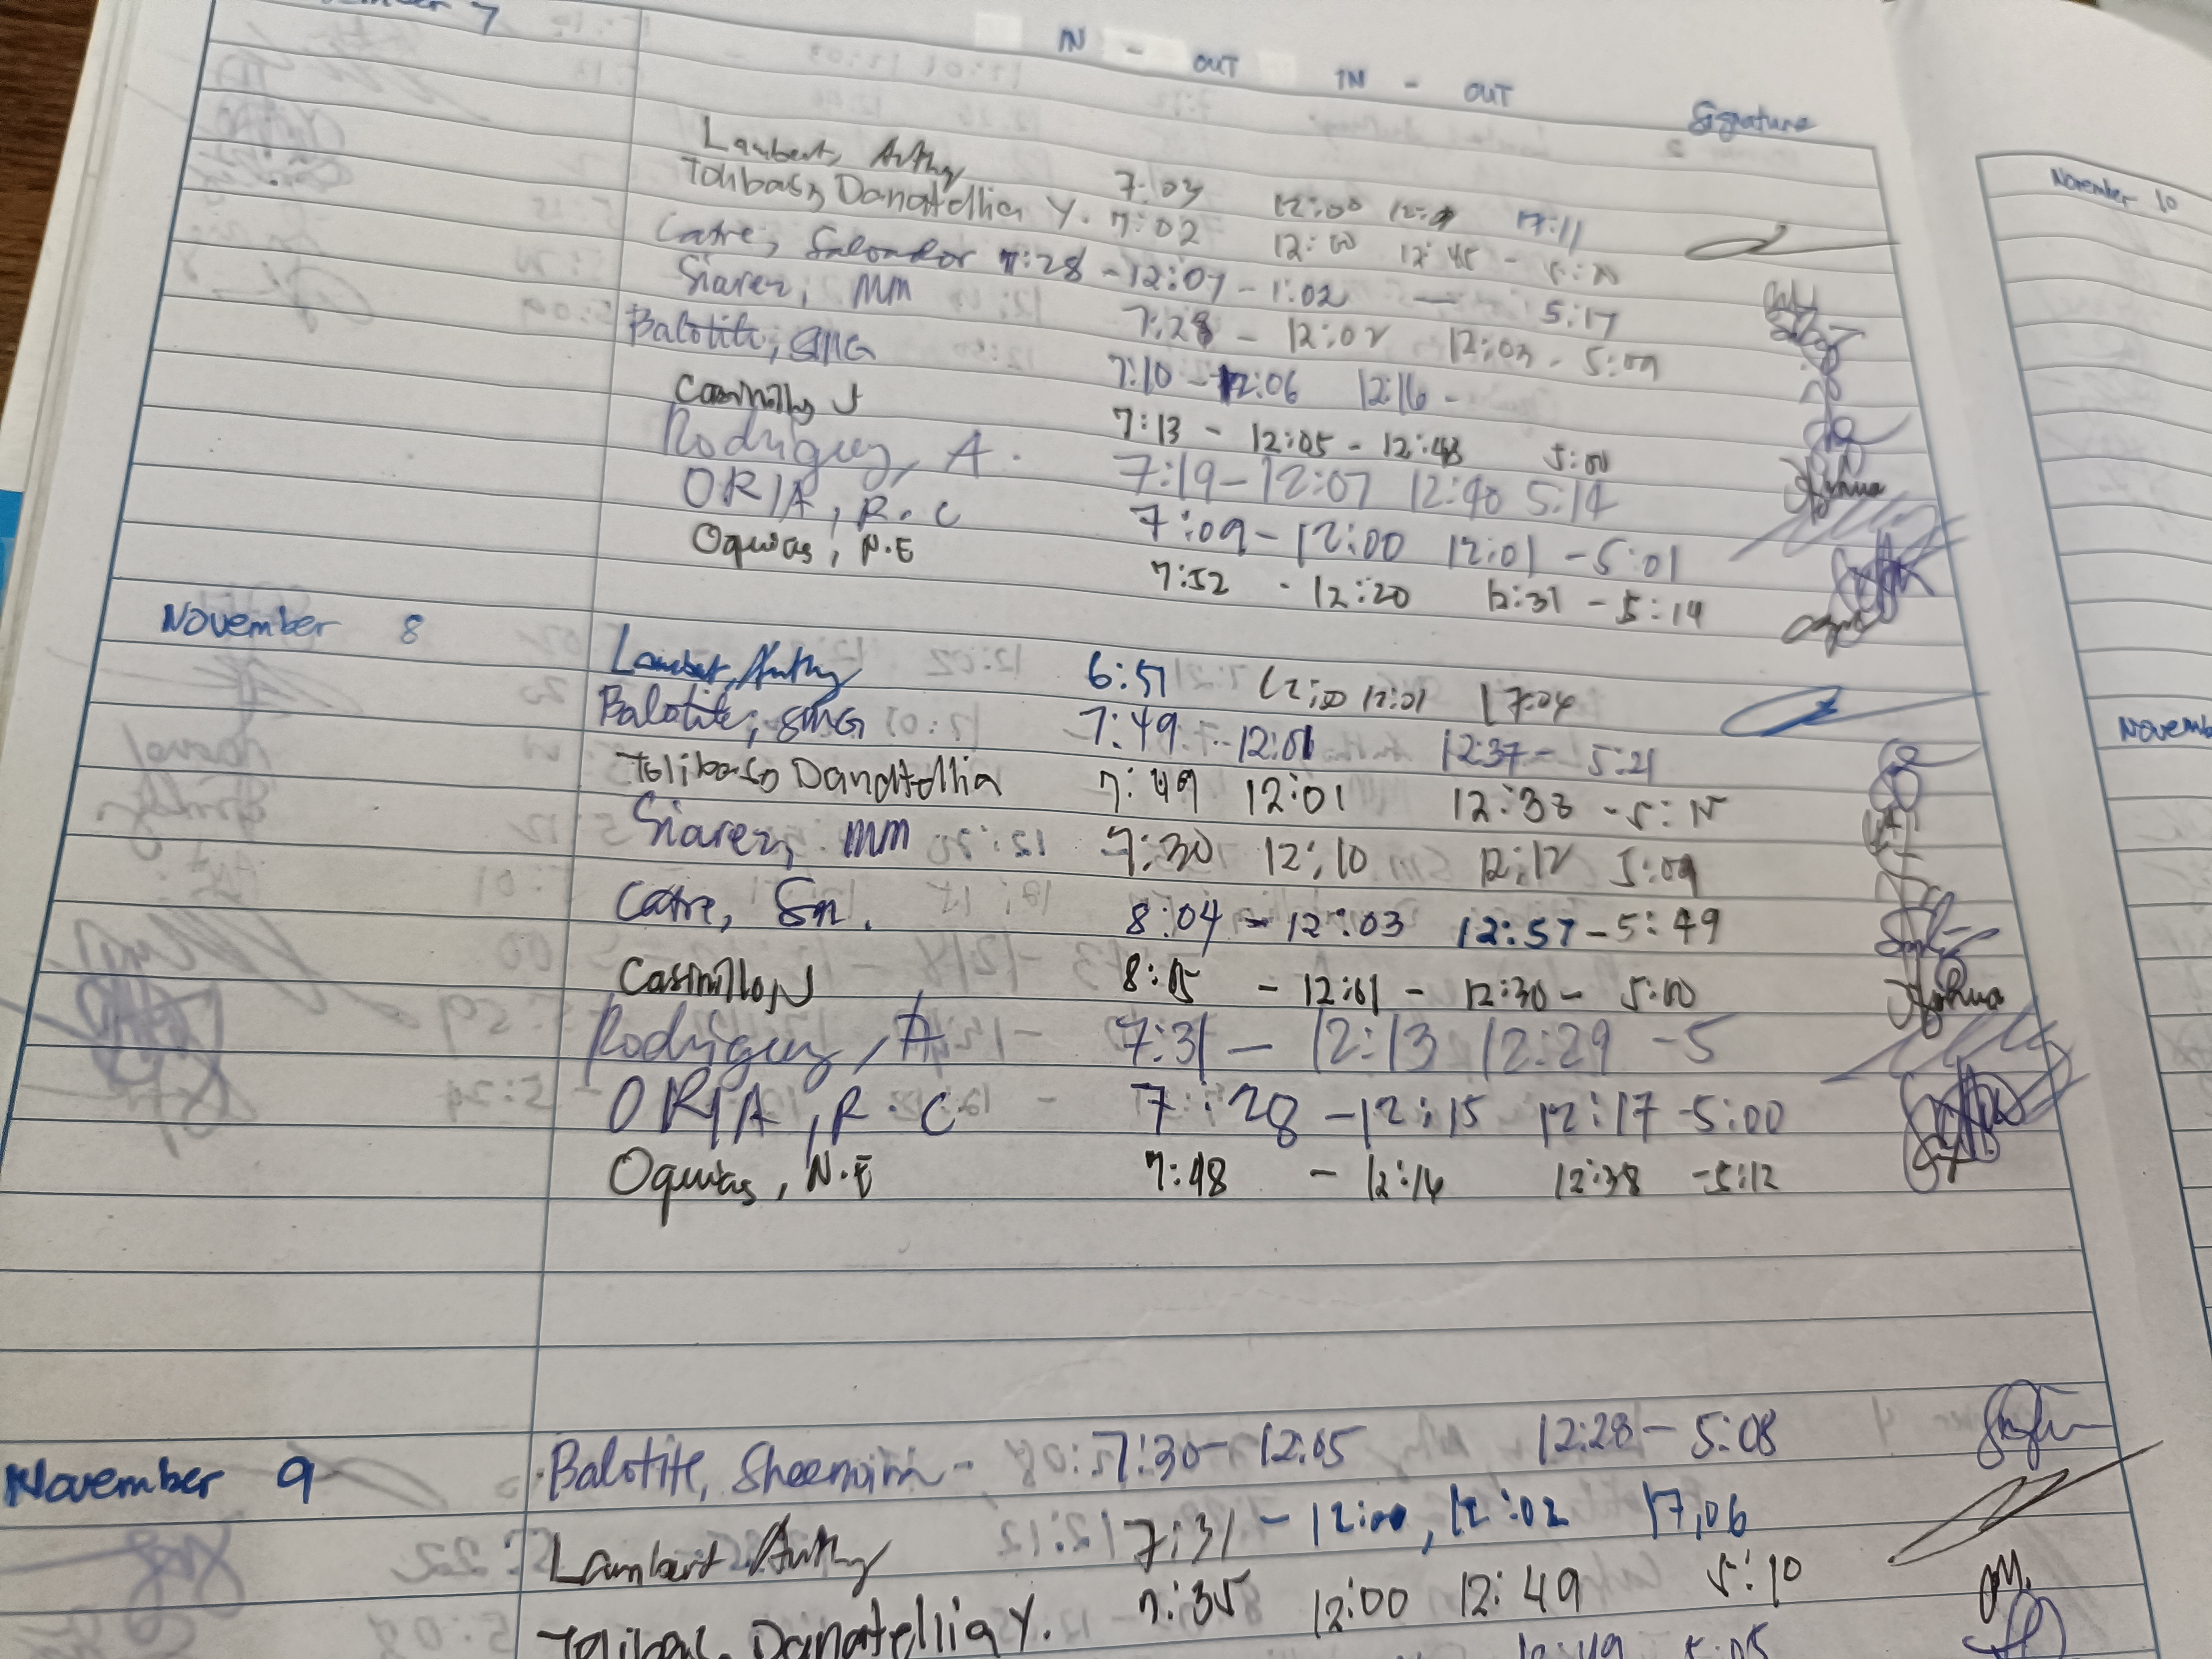 7
IN - OUT IN - OUT Signature
Lambert, Anthy 7:03 12:00 17:11
Tolibas, Danatellia Y. 7:02 12:00 12:45 -
Catre, Salvador 7:28 - 12:07 - 1:02 — 5:17
Siarez, MM 7:28 - 12:02 12:03 - 5:09
Balotite, SMG 7:10 - 12:06 12:16 -
Casinillo, J 7:13 - 12:05 - 12:48 5:00
Rodriguez, A. 7:19 - 12:07 12:40 5:14
ORIA, R.C 7:09 - 12:00 12:01 - 5:01
Oquias, N.E 7:52 - 12:20 12:31 - 5:14
November 8
Lambert, Anthy 6:51 12:00 12:01 17:04
Balotite, SMG 7:49 - 12:01 12:37 - 5:21
Tolibas, Danatellia 7:49 12:01 12:38 - 5:15
Siarez, MM 7:30 12:10 12:12 5:09
Catre, Sn. 8:04 - 12:03 12:57 - 5:49
Casinillo, J 8:15 - 12:01 - 12:30 - 5:00
Joshua
Rodriguez, A 7:31 - 12:13 12:29 - 5
ORIA, R.C 7:28 - 12:15 12:17 - 5:00
Oquias, N.E 7:48 - 12:14 12:38 - 5:12
November 9
Balotite, Sheenvirn - 7:30 - 12:05 12:28 - 5:08
Lambert, Anthy 7:31 - 12:00, 12:02 17,06
Tolibas, Danatellia Y. 7:35 12:00 12:49 5:10
5:05
November 10